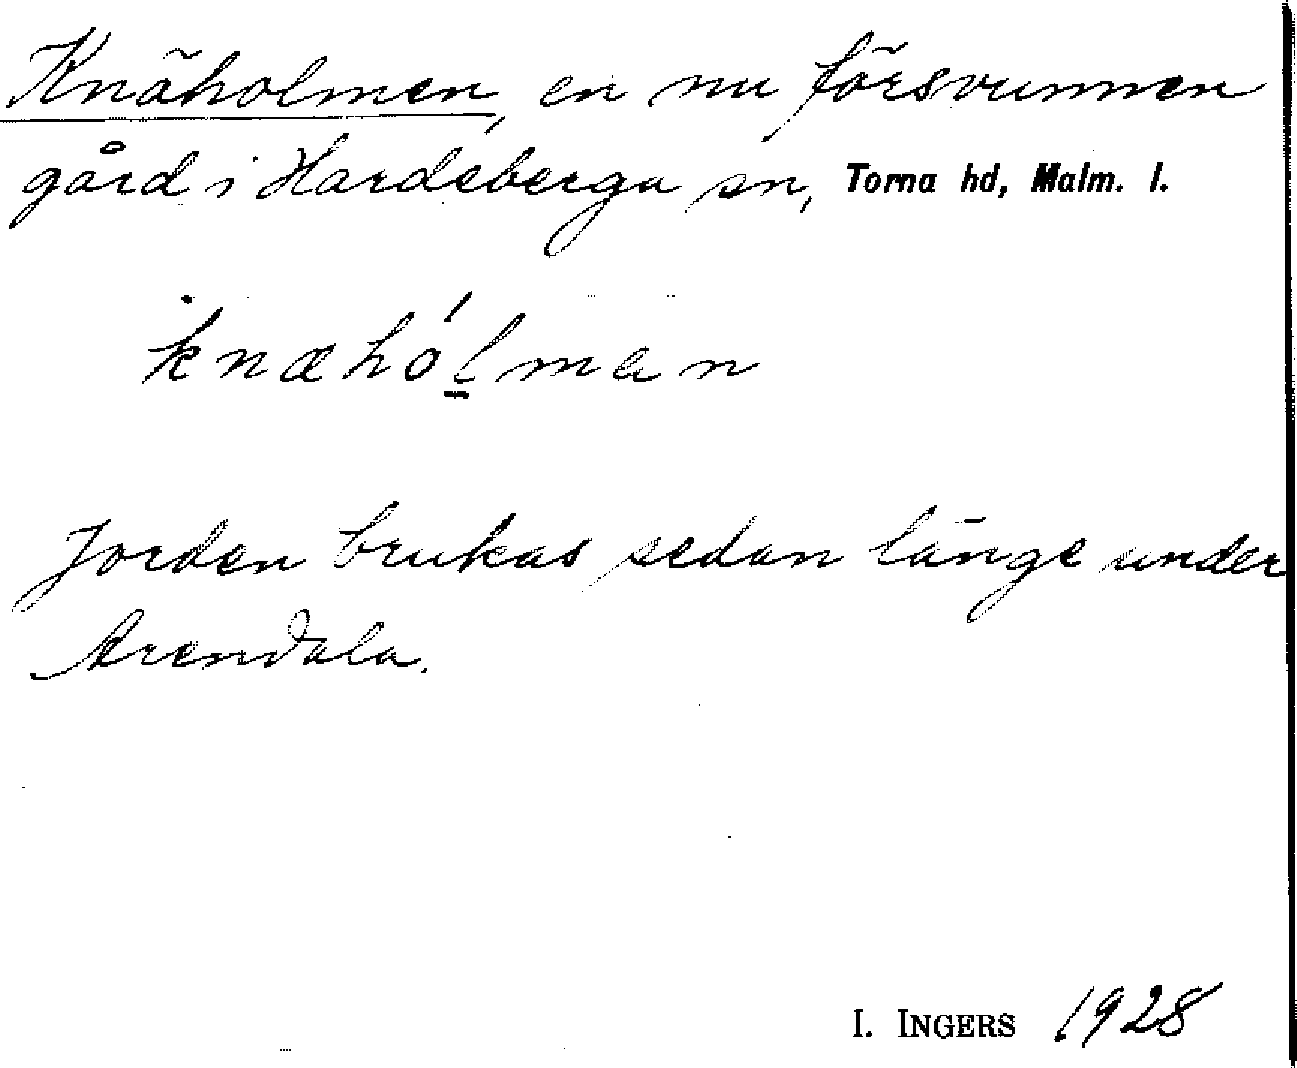 Knäholmen, en nu försvunnen
gård i Hardeberga sn, Torna hd, Malm. l.
knæhó´lmen
Jorden brukas sedan länge under
Arendala.
I. INGERS 1928